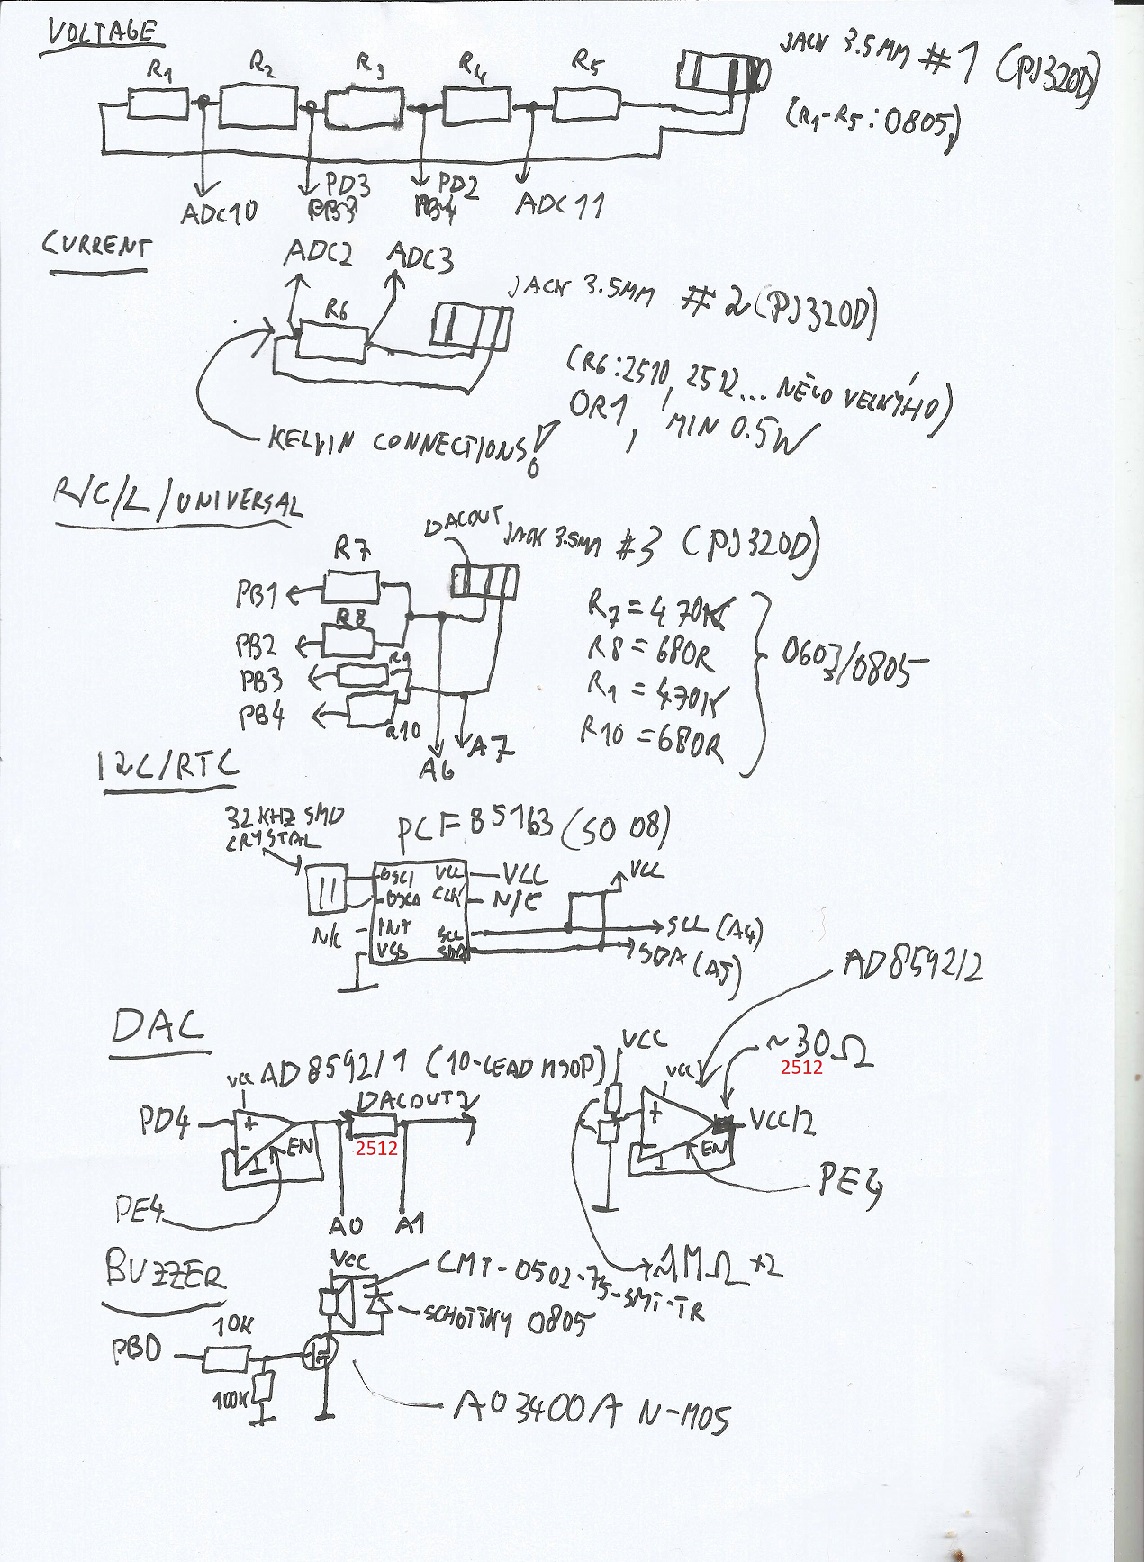 VOLTAGE
R1 R2 R3 R4 R5
JACK 3.5MM #1 (PJ320D)
(R1-R5: 0805)
ADC10
PD3
PB3
PD2
PB4
ADC11
CURRENT
ADC2 ADC3
R6
JACK 3.5MM #2 (PJ320D)
(R6: 2510, 2512... NĚCO VELKÝHO)
0R1, MIN 0.5W
KELVIN CONNECTIONS!
R/C/L/UNIVERSAL
DACOUT JACK 3.5MM #3 (PJ320D)
R7
PB1
R8
PB2
R9
PB3
R10
PB4
A6 A7
R7 = 470K
R8 = 680R
R9 = 470K
R10 = 680R
0603/0805
I2C/RTC
32KHZ SMD
CRYSTAL
PCF85163 (SO 08)
OSCI VCC VCC
OSCO CLK N/C
N/C INT SCL SCL (A4)
VSS SDA SDA (A5)
VCC
DAC
AD8592/1 (10-LEAD MSOP)
VCC
DACOUT2
PD4 + - EN
2512
PE4
A0 A1
AD8592/2
VCC
~30Ω
2512
VCC
+ - EN
VCC/2
PE4
1MΩ *2
BUZZER
VCC
CMT-0502-75-SMT-TR
SCHOTTKY 0805
10K
PB0
100K
AO3400A N-MOS